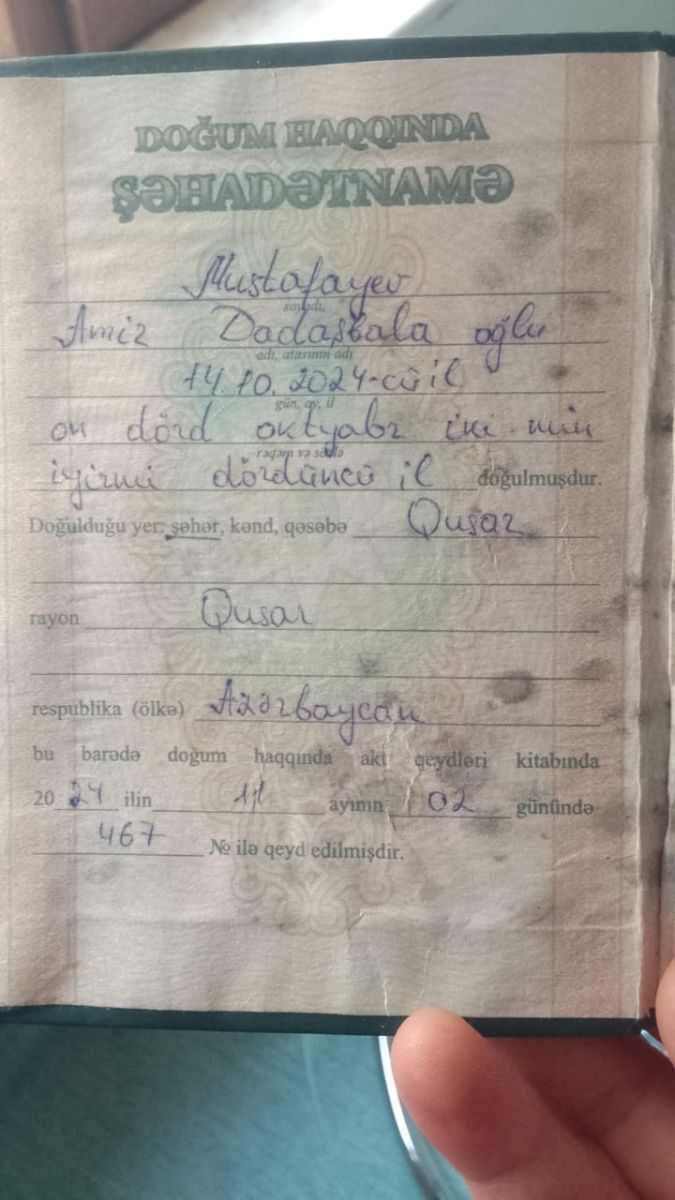 DOĞUM HAQQINDA
ŞƏHADƏTNAMƏ
Mustafayev
soyadı,
Amiz Dadaşbala oğlu
adı, atasının adı
14.10.2024-cü il
gün, ay, il
on dörd oktyabr iki min
rəqəm və sözlə
iyirmi dördüncü il doğulmuşdur.
Doğulduğu yer: şəhər, kənd, qəsəbə Qusar
rayon Qusar
respublika (ölkə) Azərbaycan
bu barədə doğum haqqında akt qeydləri kitabında
2024 ilin 11 ayının 02 günündə
467 № ilə qeyd edilmişdir.